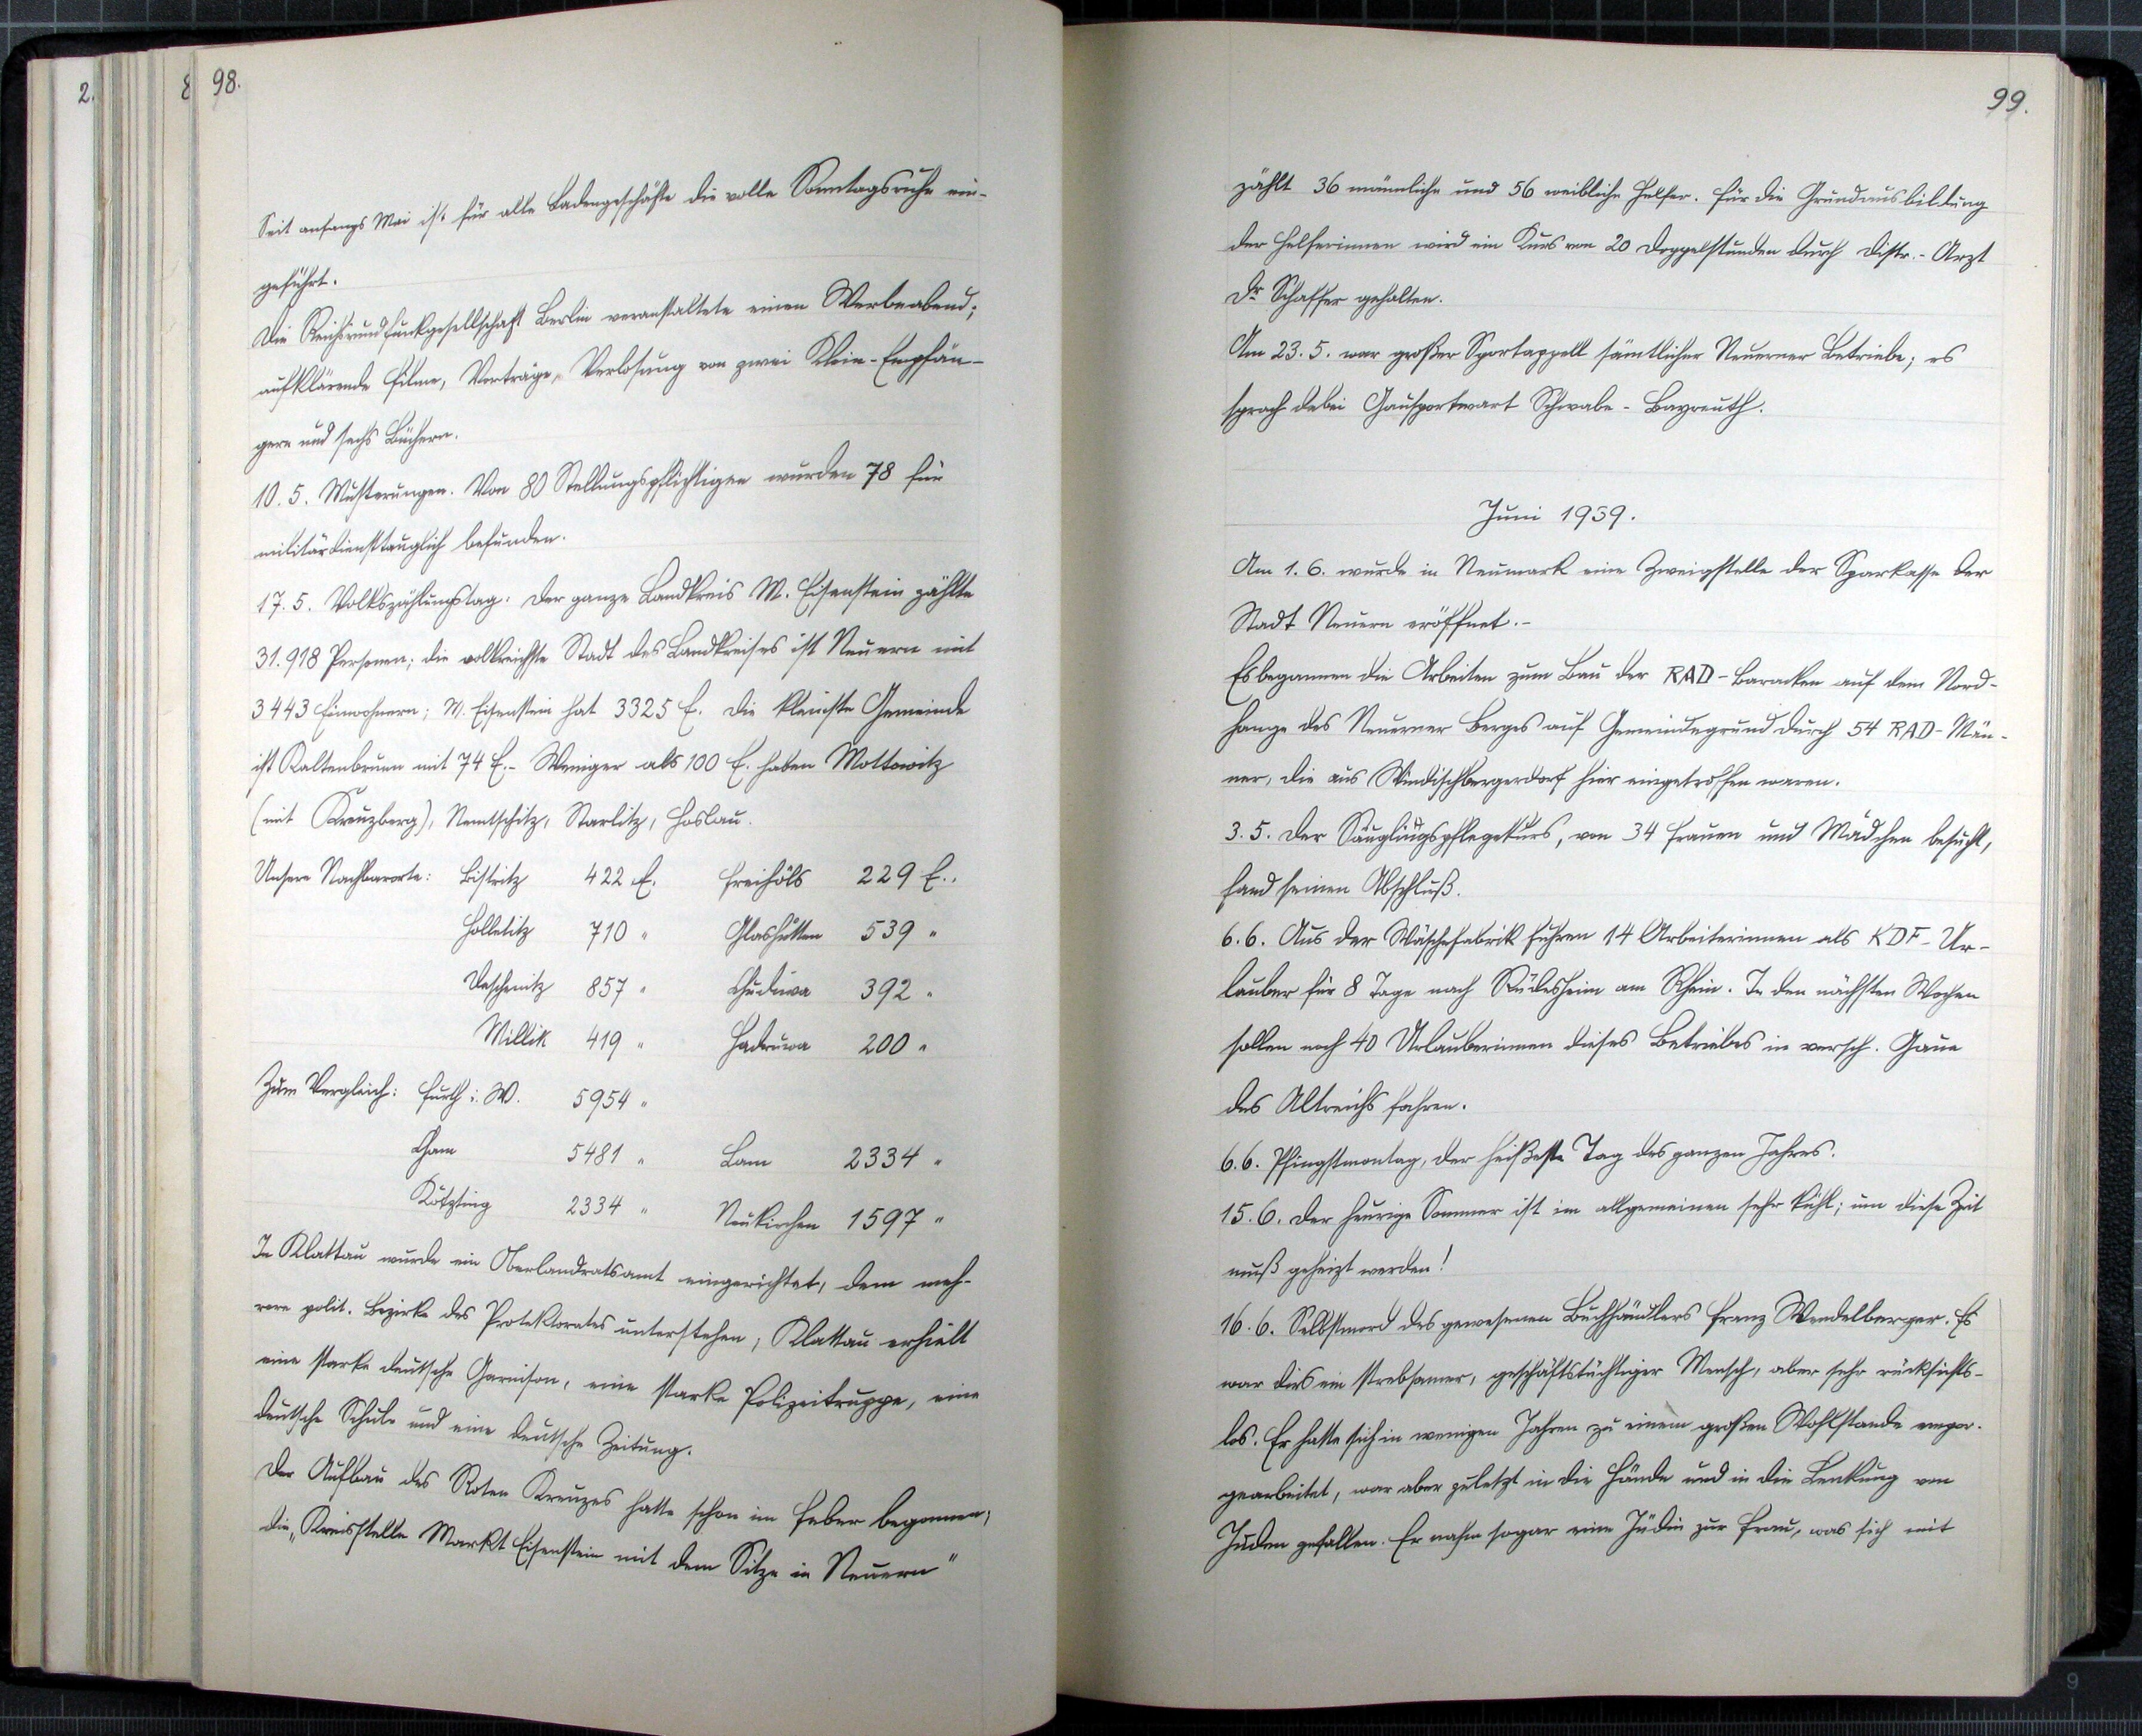 2.
8
98.
Seit anfangs Mai ist für alle Ladengeschäfte die volle Sonntagsruhe ein-
geführt.
Die Reichsrundfunkgesellschaft Berlin veranstaltete einen Werbeabend;
aufklärende Filme, Vorträge, Verlosung von zwei Klein-Empfän-
gern und sechs Büchern.
10. 5. Musterungen. Von 80 Stellungspflichtigen wurden 78 für
militärdiensttauglich befunden.
17. 5. Volkszählungstag. Der ganze Landkreis M. Eisenstein zählte
31.918 Personen; die volkreichste Stadt des Landkreises ist Neuern mit
3443 Einwohnern; M. Eisenstein hat 3325 E. Die kleinste Gemeinde
ist Kaltenbrunn mit 74 E.- Weniger als 100 E. haben Mottowitz
(mit Kreuzberg), Nemtschitz, Starlitz, Hoslau.
Unsere Nachbarorte: Bistritz 422 E. Freihöls 229 E..
Holletitz 710 " Glashütten 539 "
Deschenitz 857 " Chudiwa 392 "
Millik 419 " Hadruwa 200 "
Zum Vergleich: Furth i. W. 5954 "
Cham 5481 " Lam 2334 "
Kötzting 2334 " Neukirchen 1597 "
In Klattau wurde ein Oberlandratsamt eingerichtet, dem meh-
rere polit. Bezirke des Protektorates unterstehen; Klattau erhielt
eine starke deutsche Garnison, eine starke Polizeitruppe, eine
deutsche Schule und eine deutsche Zeitung.
Der Aufbau des Roten Kreuzes hatte schon im Feber begonnen;
die „Kreisstelle Markt Eisenstein mit dem Sitze in Neuern"
99.
zählt 36 männliche und 56 weibliche Helfer. Für die Grundausbildung
der Helferinnen wird ein Kurs von 20 Doppelstunden durch Distr.-Arzt
Dr Schaffer gehalten.
Am 23. 5. war großer Sportappell sämtlicher Neuerner Betriebe; es
sprach dabei Gausportwart Schwabe - Bayreuth.
Juni 1939.
Am 1. 6. wurde in Neumark eine Zweigstelle der Sparkasse der
Stadt Neuern eröffnet.-
Es begannen die Arbeiten zum Bau der RAD-Baracken auf dem Nord-
hange des Neuerner Berges auf Gemeindegrund durch 54 RAD-Män-
ner, die aus Windischbergerdorf hier eingetroffen waren.
3. 5. Der Säuglingspflegekurs, von 34 Frauen und Mädchen besucht,
fand seinen Abschluß.
6. 6. Aus der Wäschefabrik fuhren 14 Arbeiterinnen als KDF-Ur-
lauber für 8 Tage nach Rüdesheim am Rhein. In den nächsten Wochen
sollen noch 40 Urlauberinnen dieses Betriebes in versch. Gaue
des Altreichs fahren.
6. 6. Pfingstmontag, der heißeste Tag des ganzen Jahres.
15. 6. Der heurige Sommer ist im allgemeinen sehr kühl; um diese Zeit
muß geheizt werden!
16. 6. Selbstmord des gewesenen Buchhändlers Franz Wendelberger. Es
war dies ein strebsamer, geschäftstüchtiger Mensch, aber sehr rücksichts-
los. Er hatte sich in wenigen Jahren zu einem großen Wohlstande empor-
gearbeitet, war aber zuletzt in die Hände und in die Lenkung von
Juden gefallen. Er nahm sogar eine Jüdin zur Frau, was sich mit
9